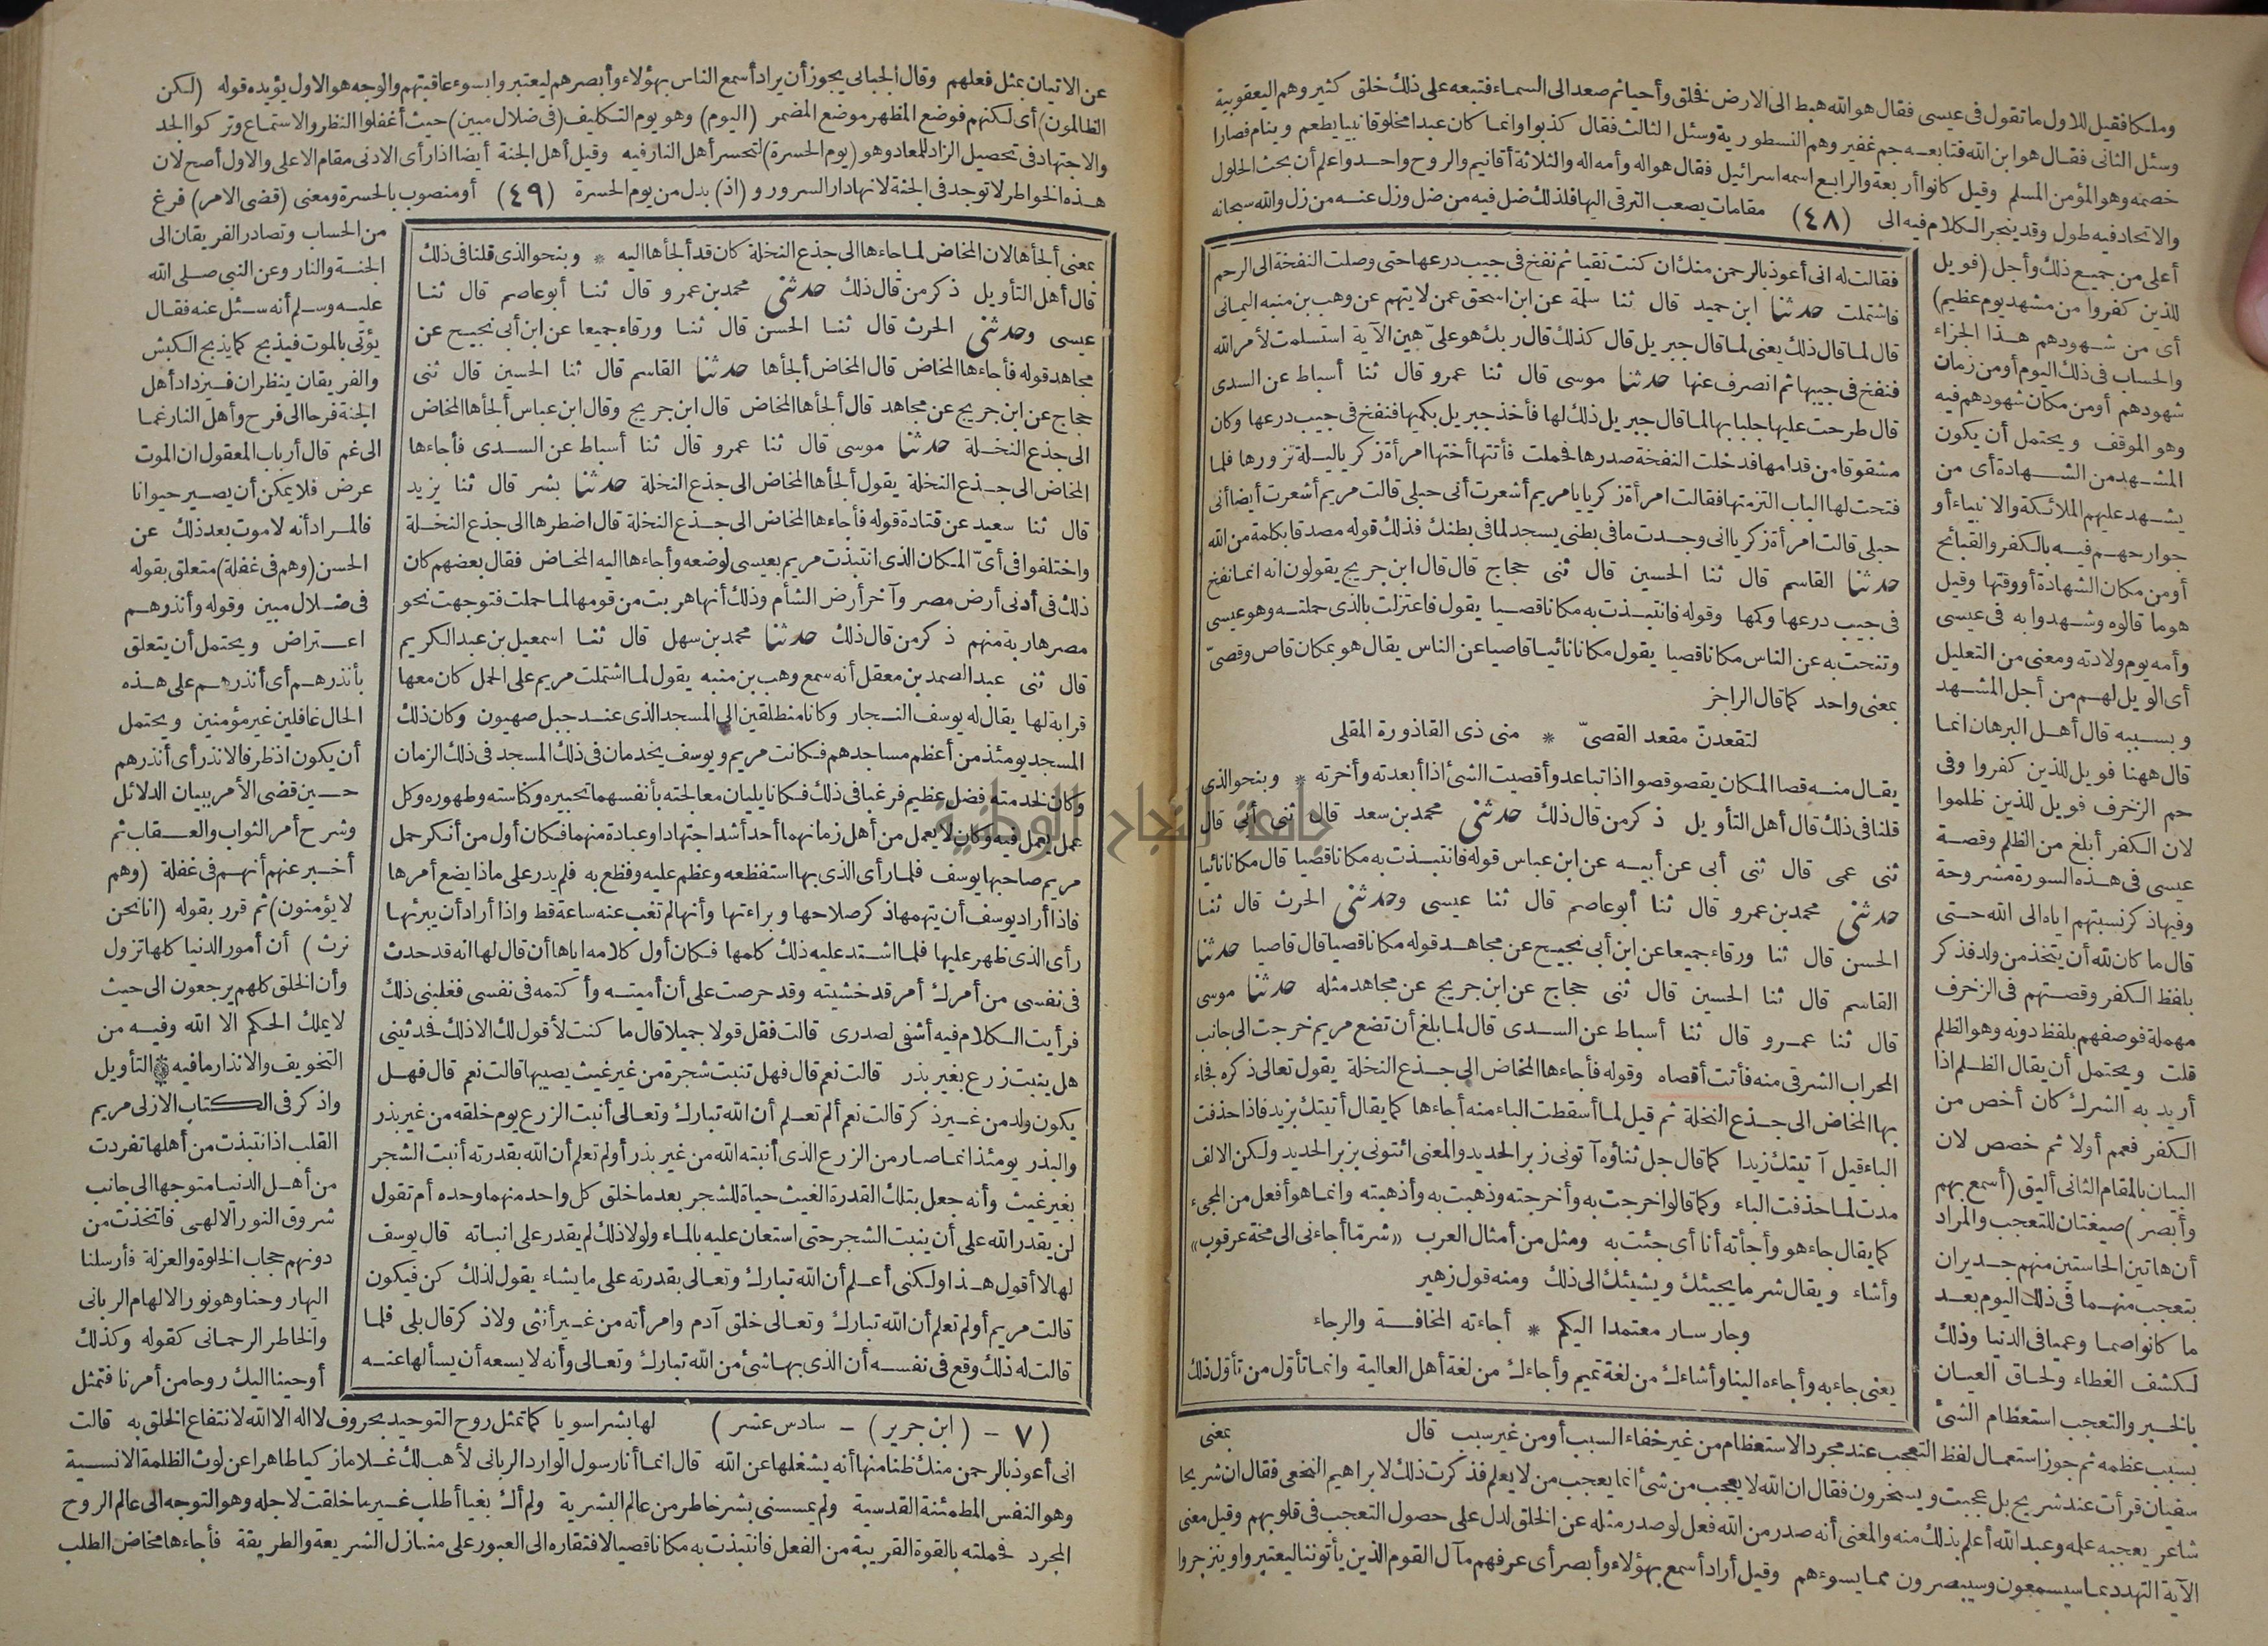 وملكا فقيل للاول ما تقول فى عيسى فقال هو الله هبط الى الارض فخلق وأحيا ثم صعد الى السماء فتبعه على ذلك خلق كثير وهم اليعقوبية
وسئل الثانى فقال هو ابن الله فتابعه جم غفير وهم النسطورية وسئل الثالث فقال كذبوا وانما كان عبدا مخلوقا نبيا يطعم وينام فصارا
خصمه وهو المؤمن المسلم وقيل كانوا أربعة والرابع اسمه اسرائيل فقال هو اله وأمه اله والثلاثة أقانيم والروح واحد واعلم أن بحث الحلول
والاتحاد فيه طول وقد ينجر الكلام فيه الى (٤٨) مقامات يصعب الترقى اليها فلذلك ضل فيه من ضل وزل عنه من زل والله سبحانه
أعلى من جميع ذلك وأجل (فويل
للذين كفروا من مشهد يوم عظيم)
أى من شهودهم هذا الجزاء
والحساب فى ذلك اليوم أو من زمان
شهودهم أو من مكان شهودهم فيه
وهو الموقف ويحتمل أن يكون
المشهد من الشهادة أى من
يشهد عليهم الملائكة والانبياء أو
جوارحهم فيه بالكفر والقبائح
أو من مكان الشهادة أو وقتها وقيل
هو ما قالوه وشهدوا به فى عيسى
وأمه يوم ولادته ومعنى من التعليل
أى الويل لهم من أجل المشهد
وبسببه قال أهل البرهان انما
قال ههنا فويل للذين كفروا وفى
حم الزخرف فويل للذين ظلموا
لان الكفر أبلغ من الظلم وقصة
عيسى فى هذه السورة مشروحة
وفيها ذكر نسبتهم اياه الى الله حتى
قال ما كان لله أن يتخذ من ولد فذكر
بلفظ الكفر وقصتهم فى الزخرف
مهملة فوصفهم بلفظ دونه وهو الظلم
قلت ويحتمل أن يقال الظلم اذا
أريد به الشرك كان أخص من
الكفر فعمم أولا ثم خصص لان
البيان بالمقام الثانى أليق (أسمع بهم
وأبصر) صيغتان للتعجب والمراد
أن هاتين الحاستين منهم جديران
بتعجب منهما فى ذلك اليوم بعد
ما كانوا صما وعميا فى الدنيا وذلك
لكشف الغطاء ولحاق العيان
بالخبر والتعجب استعظام الشئ
فقالت له انى أعوذ بالرحمن منك ان كنت تقيا ثم نفخ فى جيب درعها حتى وصلت النفخة الى الرحم
فاشتملت حدثنا ابن حميد قال ثنا سلمة عن ابن اسحق عمن لا يتهم عن وهب بن منبه اليمانى
قال لما قال ذلك يعنى لما قال جبريل قال كذلك قال ربك هو علىّ هين الآية استسلمت لأمر الله
فنفخ فى جيبها ثم انصرف عنها حدثنا موسى قال ثنا عمرو قال ثنا أسباط عن السدى
قال طرحت عليها جلبابها لما قال جبريل ذلك لها فأخذ جبريل بكميها فنفخ فى جيب درعها وكان
مشقوقا من قدامها فدخلت النفخة صدرها فحملت فأتتها أختها امرأة زكريا ليلة تزورها فلما
فتحت لها الباب التزمتها فقالت امرأة زكريا يا مريم أشعرت أنى حبلى قالت مريم أشعرت أيضا أنى
حبلى قالت امرأة زكريا انى وجدت ما فى بطنى يسجد لما فى بطنك فذلك قوله مصدقا بكلمة من الله
حدثنا القاسم قال ثنا الحسين قال ثنى حجاج قال قال ابن جريج يقولون انه انما نفخ
فى جيب درعها وكمها وقوله فانتبذت به مكانا قصيا يقول فاعتزلت بالذى حملته وهو عيسى
وتنحت به عن الناس مكانا قصيا يقول مكانا نائيا قاصيا عن الناس يقال هو بمكان قاص وقصىّ
بمعنى واحد كما قال الراجز
لتقعدنّ مقعد القصىّ * منى ذى القاذورة المقلى
يقال منه قصا المكان يقصو قصوا اذا تباعد وأقصيت الشئ اذا أبعدته وأخرته * وبنحو الذى
قلنا فى ذلك قال أهل التأويل ذكر من قال ذلك حدثنى محمد بن سعد قال ثنى أبى قال
ثنى عمى قال ثنى أبى عن أبيه عن ابن عباس قوله فانتبذت به مكانا قصيا قال مكانا نائيا
حدثنى محمد بن عمرو قال ثنا أبو عاصم قال ثنا عيسى وحدثنى الحرث قال ثنا
الحسن قال ثنا ورقاء جميعا عن ابن أبى نجيح عن مجاهد قوله مكانا قصيا قال قاصيا حدثنا
القاسم قال ثنا الحسين قال ثنى حجاج عن ابن جريج عن مجاهد مثله حدثنا موسى
قال ثنا عمرو قال ثنا أسباط عن السدى قال لما بلغ أن تضع مريم خرجت الى جانب
المحراب الشرقى منه فأتت أقصاه وقوله فأجاءها المخاض الى جذع النخلة يقول تعالى ذكره فجاء
بها المخاض الى جذع النخلة ثم قيل لما أسقطت الباء منه أجاءها كما يقال أتيتك بزيد فاذا حذفت
الباء قيل آتيتك زيدا كما قال جل ثناؤه آتونى زبر الحديد والمعنى ائتونى بزبر الحديد ولكن الالف
مدت لما حذفت الباء وكما قالوا خرجت به وأخرجته وذهبت به وأذهبته وانما هو أفعل من المجىء
كما يقال جاء هو وأجأته أنا أى جئت به ومثل من أمثال العرب «شرمّا أجاءنى الى مخة عرقوب»
وأشاء ويقال شر ما يجيئك ويشيئك الى ذلك ومنه قول زهير
وجار سار معتمدا اليكم * أجاءته المخافة والرجاء
يعنى جاء به وأجاءه الينا وأشاءك من لغة تميم وأجاءك من لغة أهل العالية وانما تأوّل من تأوّل ذلك
بمعنى
بسبب عظمه ثم جوز استعمال لفظ التعجب عند مجرد الاستعظام من غير خفاء السبب أو من غير سبب قال
سفيان قرأت عند شريح بل عجبت ويسخرون فقال ان الله لا يعجب من شئ انما يعجب من لا يعلم فذكرت ذلك لابراهيم النخعى فقال ان شريحا
شاعر يعجبه علمه وعبد الله أعلم بذلك منه والمعنى أنه صدر من الله فعل لو صدر مثله عن الخلق لدل على حصول التعجب فى قلوبهم وقيل معنى
الآية التهدد بما سيسمعون وسيبصرون مما يسوءهم وقيل أراد أسمع بهؤلاء وأبصر أى عرفهم مآل القوم الذين يأتوننا ليعتبروا وينزجروا
عن الاتيان بمثل فعلهم وقال الجبائى يجوز أن يراد أسمع الناس بهؤلاء وأبصرهم ليعتبروا بسوء عاقبتهم والوجه هو الاول يؤيده قوله (لكن
الظالمون) أى لكنهم فوضع المظهر موضع المضمر (اليوم) وهو يوم التكليف (فى ضلال مبين) حيث أغفلوا النظر والاستماع وتركوا الجد
والاجتهاد فى تحصيل الزاد للمعاد وهو (يوم الحسرة) لتحسر أهل النار فيه وقيل أهل الجنة أيضا اذا رأى الادنى مقام الاعلى والاول أصح لان
هذه الخواطر لا توجد فى الجنة لانها دار السرور و (اذ) بدل من يوم الحسرة (٤٩) أو منصوب بالحسرة ومعنى (قضى الامر) فرغ
من الحساب وتصادر الفريقان الى
الجنة والنار وعن النبى صلى الله
عليه وسلم أنه سئل عنه فقال
يؤتى بالموت فيذبح كما يذبح الكبش
والفريقان ينظران فيزداد أهل
الجنة فرحا الى فرح وأهل النار غما
الى غم قال أرباب المعقول ان الموت
عرض فلا يمكن أن يصير حيوانا
فالمراد أنه لا موت بعد ذلك عن
الحسن (وهم فى غفلة) متعلق بقوله
فى ضلال مبين وقوله وأنذرهم
اعتراض ويحتمل أن يتعلق
بأنذرهم أى أنذرهم على هذه
الحال غافلين غير مؤمنين ويحتمل
أن يكون اذ ظرفا لانذر أى أنذرهم
حين قضى الأمر ببيان الدلائل
وشرح أمر الثواب والعقاب ثم
أخبر عنهم أنهم فى غفلة (وهم
لا يؤمنون) ثم قرر بقوله (انا نحن
نرث) أن أمور الدنيا كلها تزول
وأن الخلق كلهم يرجعون الى حيث
لا يملك الحكم الا الله وفيه من
التخويف والانذار ما فيه * التأويل
واذكر فى الكتاب الازلى مريم
القلب اذ انتبذت من أهلها تفردت
من أهل الدنيا متوجها الى جانب
شروق النور الالهى فاتخذت من
دونهم حجاب الخلوة والعزلة فأرسلنا
اليها روحنا وهو نور الالهام الربانى
والخاطر الرحمانى كقوله وكذلك
أوحينا اليك روحا من أمرنا فتمثل
بمعنى ألجأها لان المخاض لما جاءها الى جذع النخلة كان قد ألجأها اليه * وبنحو الذى قلنا فى ذلك
قال أهل التأويل ذكر من قال ذلك حدثنى محمد بن عمرو قال ثنا أبو عاصم قال ثنا
عيسى وحدثنى الحرث قال ثنا الحسن قال ثنا ورقاء جميعا عن ابن أبى نجيح عن
مجاهد قوله فأجاءها المخاض قال المخاض ألجأها حدثنا القاسم قال ثنا الحسين قال ثنى
حجاج عن ابن جريج عن مجاهد قال ألجأها المخاض قال ابن جريج وقال ابن عباس ألجأها المخاض
الى جذع النخلة حدثنا موسى قال ثنا عمرو قال ثنا أسباط عن السدى فأجاءها
المخاض الى جذع النخلة يقول ألجأها المخاض الى جذع النخلة حدثنا بشر قال ثنا يزيد
قال ثنا سعيد عن قتادة قوله فأجاءها المخاض الى جذع النخلة قال اضطرها الى جذع النخلة
واختلفوا فى أىّ المكان الذى انتبذت مريم بعيسى لوضعه وأجاءها اليه المخاض فقال بعضهم كان
ذلك فى أدنى أرض مصر وآخر أرض الشأم وذلك أنها هربت من قومها لما حملت فتوجهت نحو
مصر هاربة منهم ذكر من قال ذلك حدثنا محمد بن سهل قال ثنا اسمعيل بن عبد الكريم
قال ثنى عبد الصمد بن معقل أنه سمع وهب بن منبه يقول لما اشتملت مريم على الحمل كان معها
قرابة لها يقال له يوسف النجار وكانا منطلقين الى المسجد الذى عند جبل صهيون وكان ذلك
المسجد يومئذ من أعظم مساجدهم فكانت مريم ويوسف يخدمان فى ذلك المسجد فى ذلك الزمان
وكان لخدمته فضل عظيم فرغبا فى ذلك فكانا يليان معالجته بأنفسهما تحبيره وكناسته وطهوره وكل
عمل يعمل فيه وكان لا يعمل من أهل زمانهما أحد أشد اجتهادا وعبادة منهما فكان أول من أنكر حمل
مريم صاحبها يوسف فلما رأى الذى بها استفظعه وعظم عليه وفظع به فلم يدر على ماذا يضع أمرها
فاذا أراد يوسف أن يتهمها ذكر صلاحها وبراءتها وأنها لم تغب عنه ساعة قط واذا أراد أن يبرئها
رأى الذى ظهر عليها فلما اشتد عليه ذلك كلمها فكان أول كلامه اياها أن قال لها انه قد حدث
فى نفسى من أمرك أمر قد خشيته وقد حرصت على أن أميته وأكتمه فى نفسى فغلبنى ذلك
فرأيت الكلام فيه أشفى لصدرى قالت فقل قولا جميلا قال ما كنت لأقول لك الا ذلك فحدثينى
هل ينبت زرع بغير بذر قالت نعم قال فهل تنبت شجرة من غير غيث يصيبها قالت نعم قال فهل
يكون ولد من غير ذكر قالت نعم ألم تعلم أن الله تبارك وتعالى أنبت الزرع يوم خلقه من غير بذر
والبذر يومئذ انما صار من الزرع الذى أنبته الله من غير بذر أولم تعلم أن الله بقدرته أنبت الشجر
بغير غيث وأنه جعل بتلك القدرة الغيث حياة للشجر بعد ما خلق كل واحد منهما وحده أم تقول
لن يقدر الله على أن ينبت الشجر حتى استعان عليه بالماء ولولا ذلك لم يقدر على انباته قال يوسف
لها لا أقول هذا ولكنى أعلم أن الله تبارك وتعالى بقدرته على ما يشاء يقول لذلك كن فيكون
قالت مريم أولم تعلم أن الله تبارك وتعالى خلق آدم وامرأته من غير أنثى ولا ذكر قال بلى فلما
قالت له ذلك وقع فى نفسه أن الذى بها شئ من الله تبارك وتعالى وأنه لا يسعه أن يسألها عنه
(٧ - (ابن جرير) - سادس عشر) لها بشرا سويا كما تمثل روح التوحيد بحروف لا اله الا الله لانتفاع الخلق به قالت
انى أعوذ بالرحمن منك ظنا منها أنه يشغلها عن الله قال انما أنا رسول الوارد الربانى لأهب لك غلاما زكيا طاهرا عن لوث الظلمة الانسية
وهو النفس المطمئنة القدسية ولم يمسسنى بشر خاطر من عالم البشرية ولم أك بغيا أطلب غير ما خلقت لاجله وهو التوجه الى عالم الروح
المجرد فحملته بالقوة القريبة من الفعل فانتبذت به مكانا قصيا لافتقاره الى العبور على منازل الشريعة والطريقة فأجاءها مخاض الطلب
جامعة النجاح الوطنية